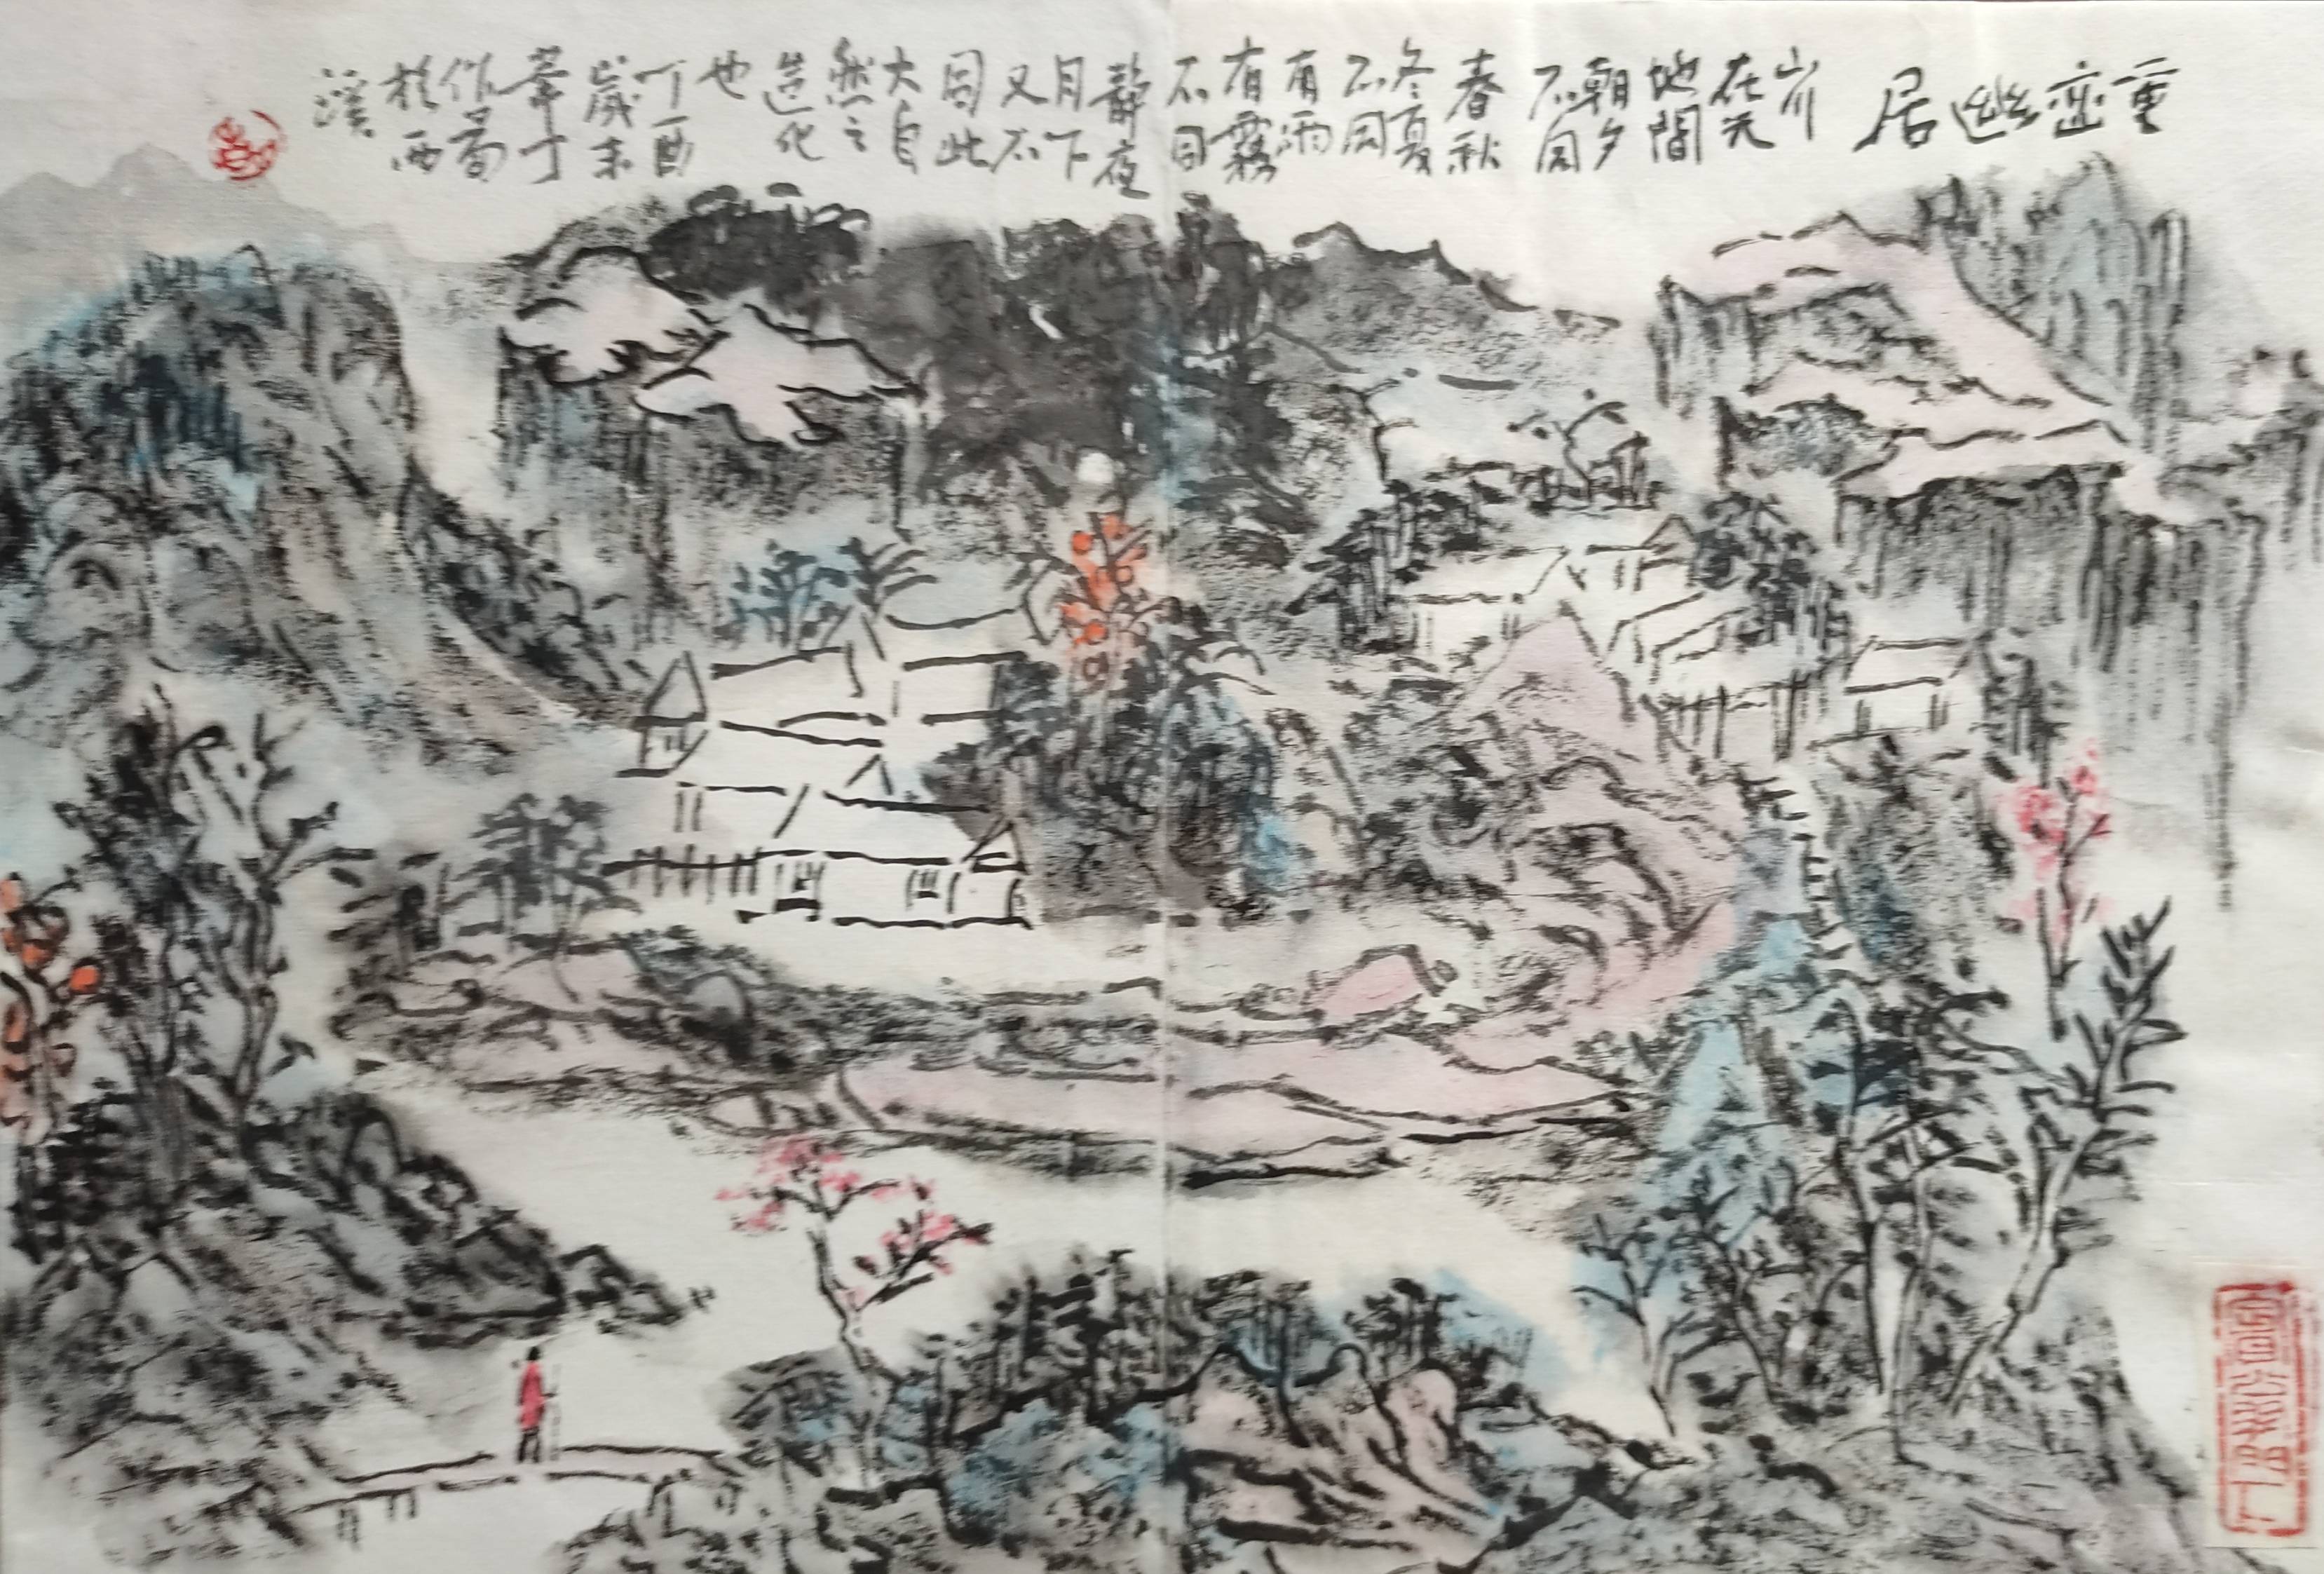 重峦幽居
山川
在天
地間
朝夕
不同
春秋
冬夏
不同
有雨
有霧
不同
靜夜
月下
又不
同此
大自
然之
造化
也
丁酉
歲末
丁
作
於西
溪